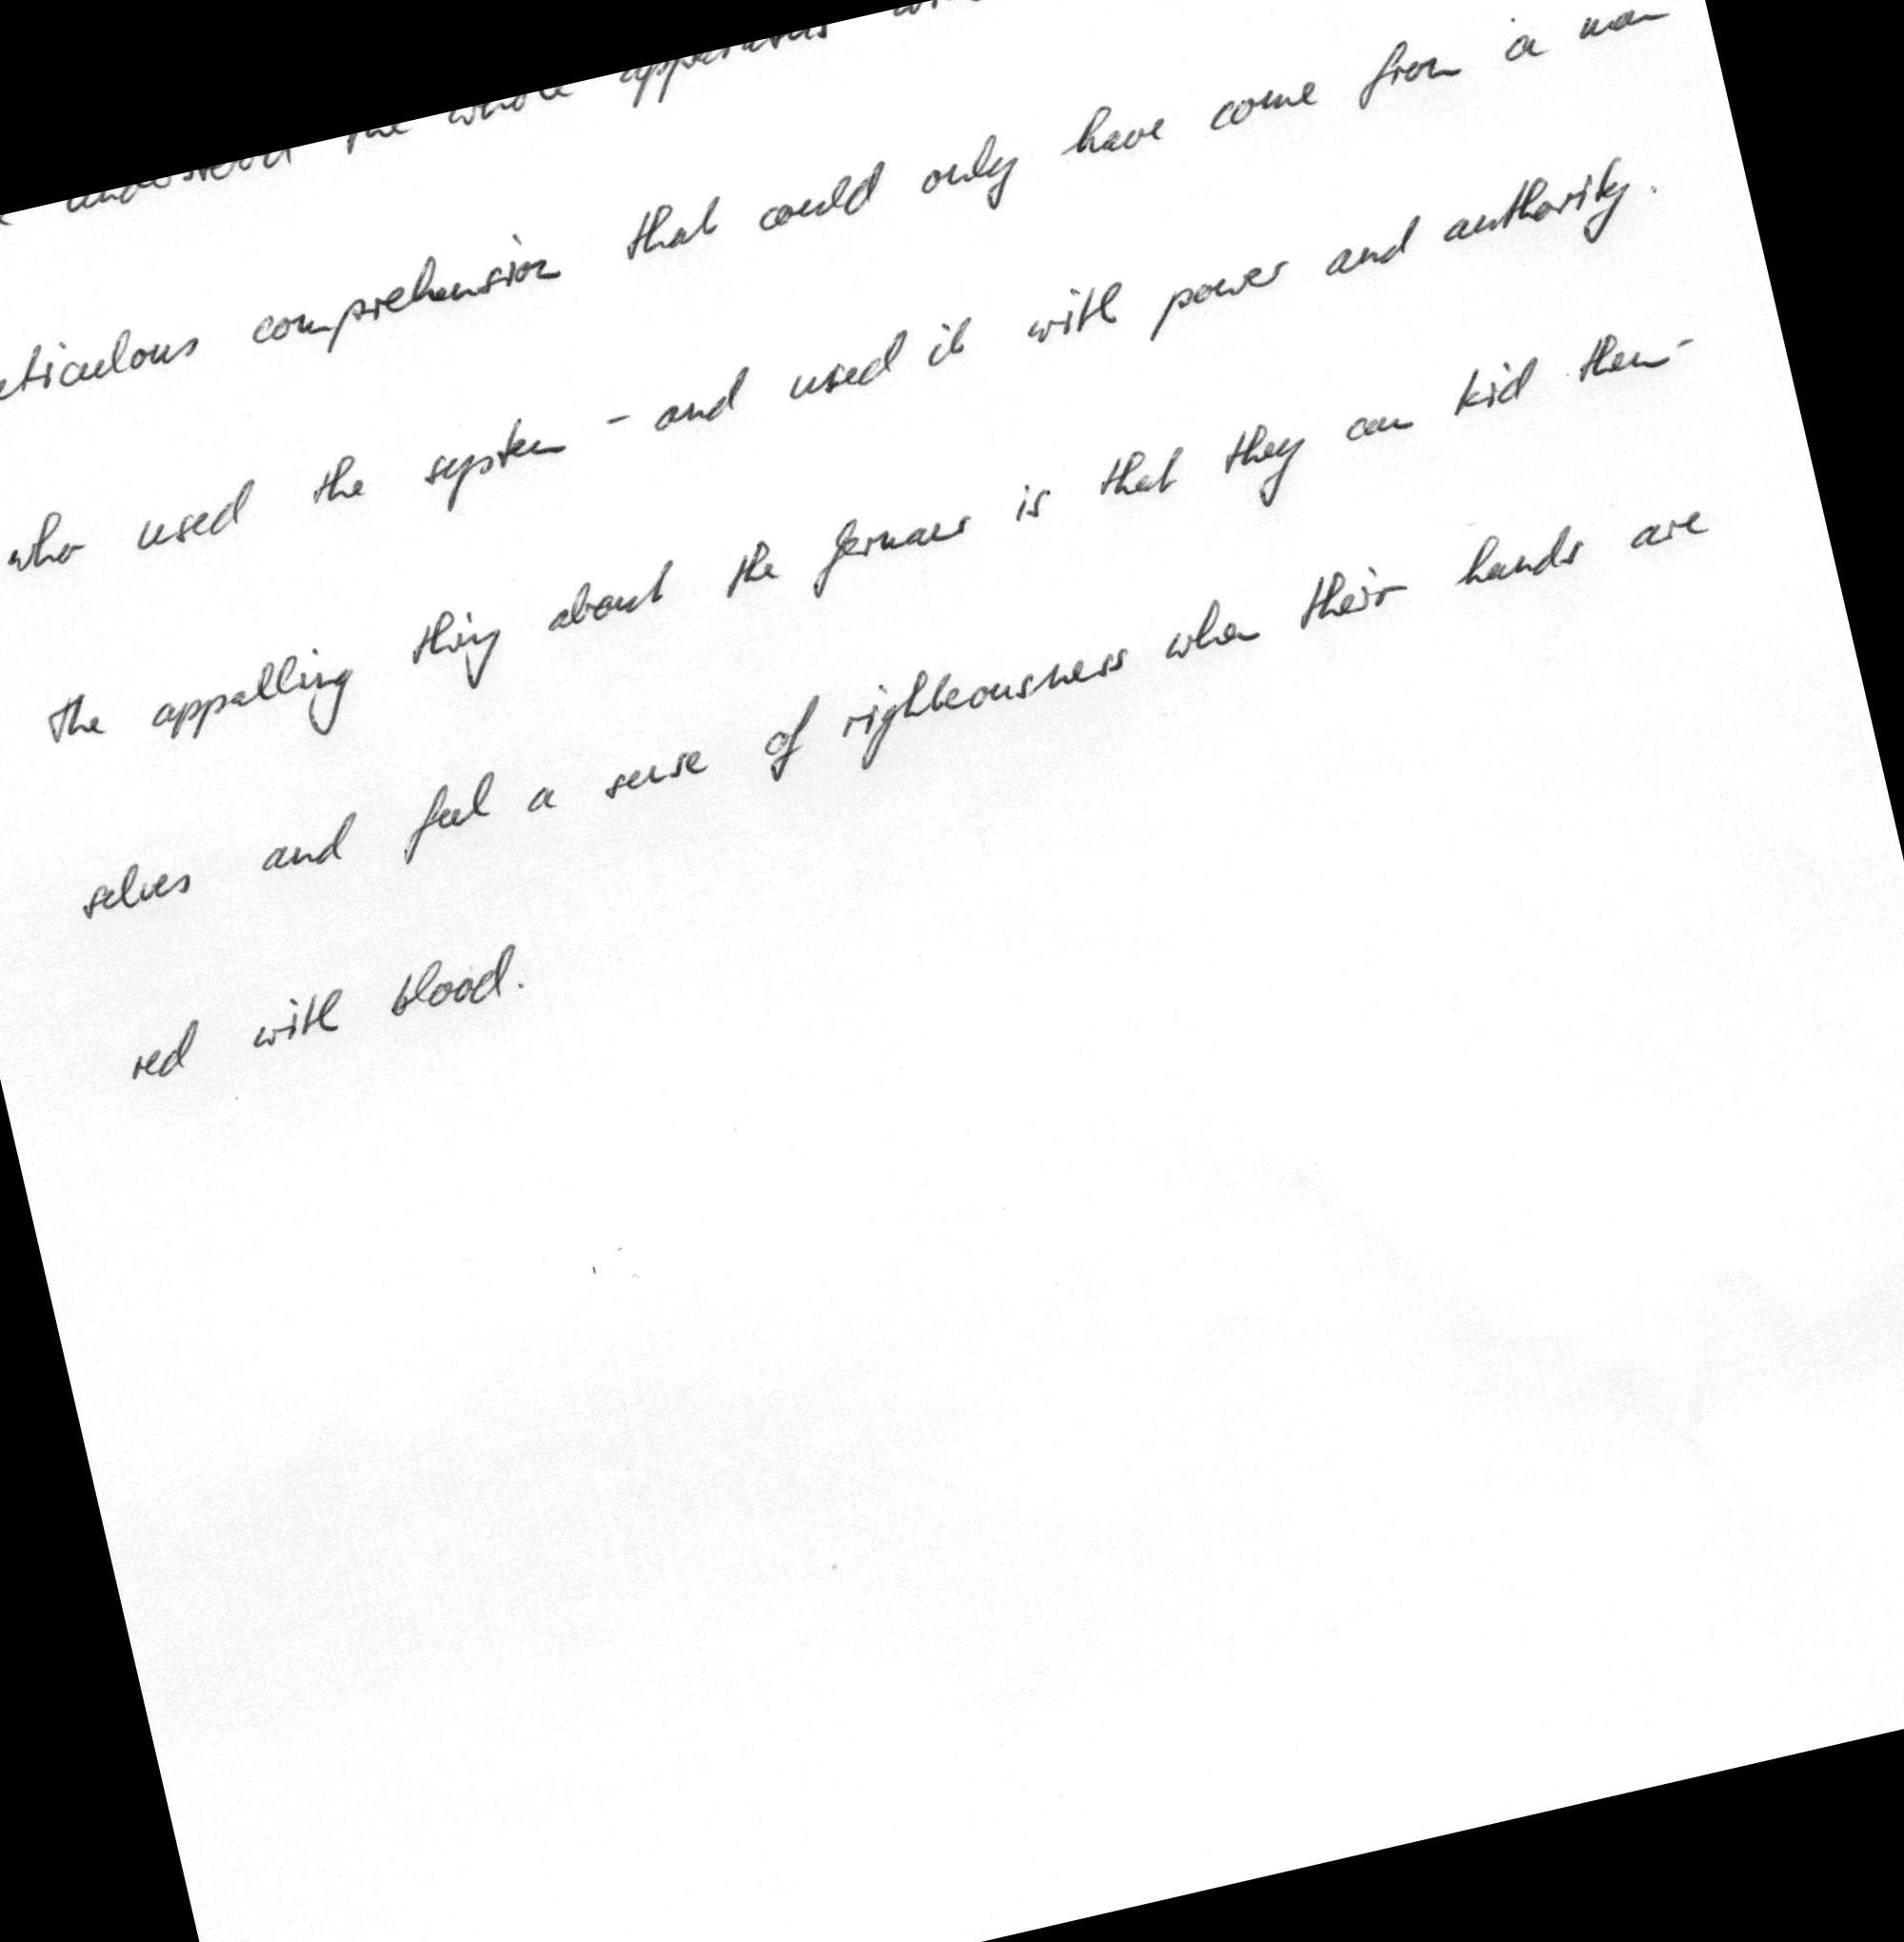 understood the whole apparatus
meticulous comprehension that could only have come from a man
who used the system - and used it with power and authority.
The appalling thing about the Germans is that they can kid them-
selves and feel a sense of righteousness when their hands are
red with blood.